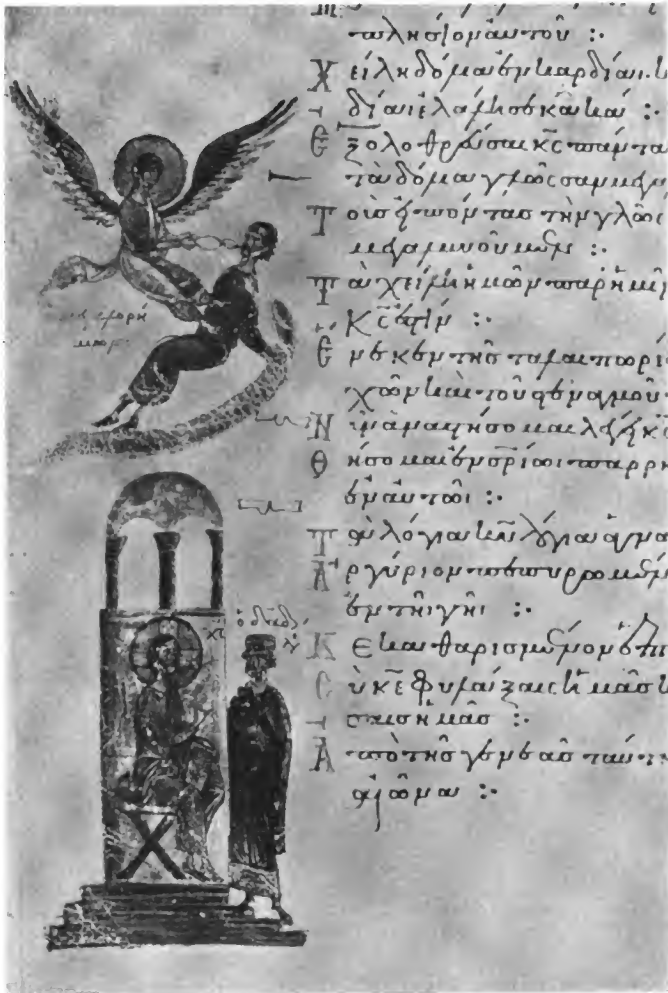 πλησίον αὐτοῦ :·
Χείλη δόλια ἐν καρδίαι κ
δίαι ἐλάλησε κακά :·
Ἐξολοθρεύσαι κ̅ς πάντα
τὰ δόλια γλῶσσαν μεγαλ
Τοὺς εἰπόντας τὴν γλῶσ
μεγαλυνοῦμεν :·
Τὰ χείλη ἡμῶν παρ' ἡμῖ
κ̅ς ἐστίν :·
Ἕνεκεν τῆς ταλαιπωρί
χῶν καὶ τοῦ στεναγμοῦ
Νῦν ἀναστήσομαι λέγει κ̅ς
Θήσομαι ἐν σ̅ρίωι παρρη
ἐν αὐτῶι :·
Τὰ λόγια κ̅υ λόγια ἁγνὰ
Ἀργύριον πεπυρωμέν
ἐν τῆι γῆι :·
Κεκαθαρισμένον ἑπτ
Σὺ κ̅ε φυλάξαις ἡμᾶς
σαις ἡμᾶς :·
Ἀπὸ τῆς γενεᾶς ταύτη
αἰῶνα :·